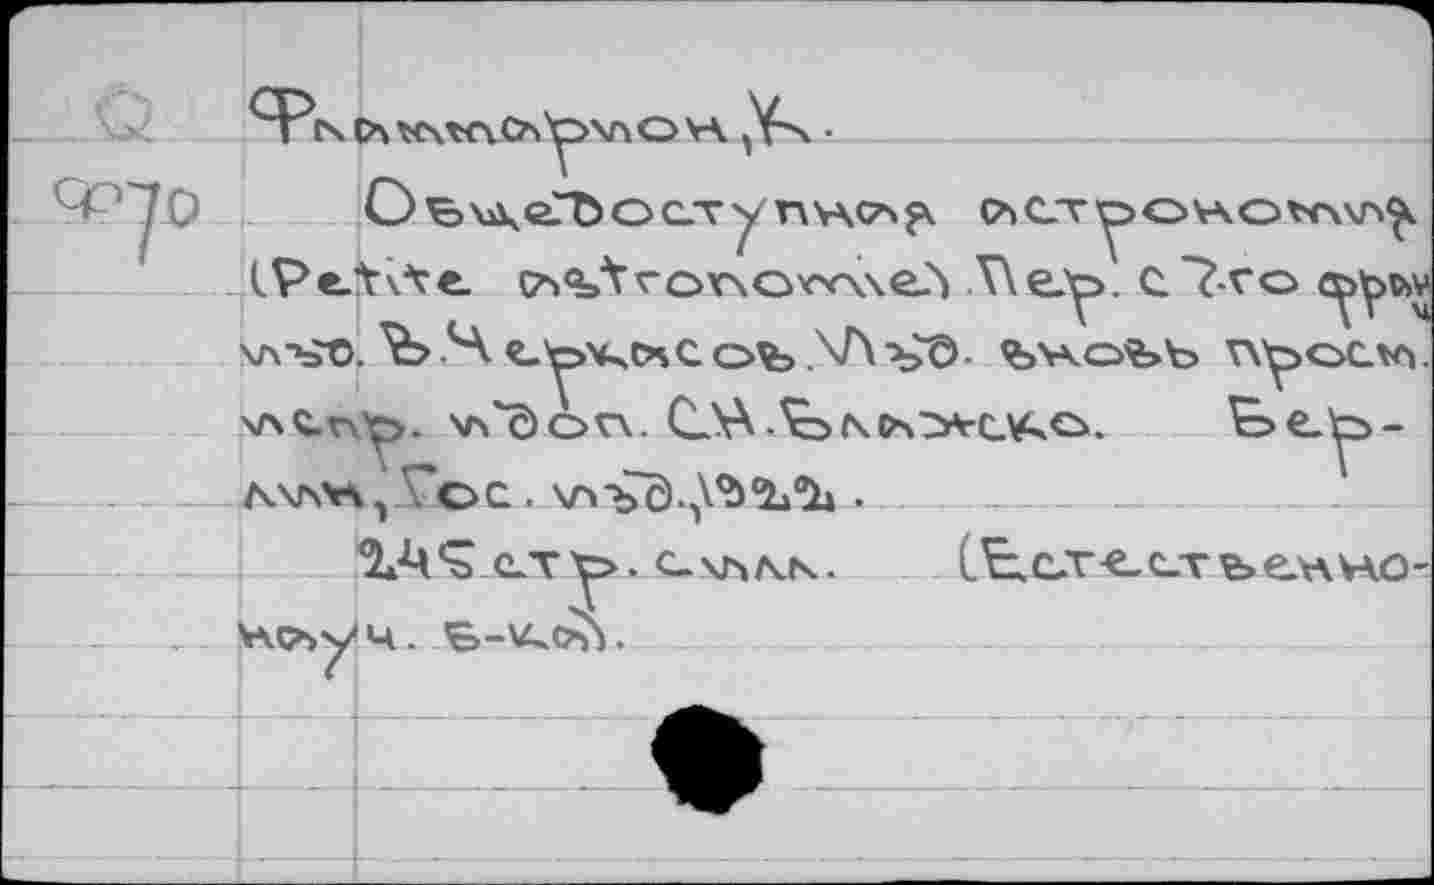 Q
Ф70
Фламмарион, К.
Общедоступная астрономия
(Petite astronomie). Пер. с 7-го франц.
изд. В. Черкасов. Изд. вновь просм.
испр. и доп. С.Н. Блажско. Бер-
лин, Гос. изд., 1922.
248 стр. с илл. (Естественно-
науч. б-ка).